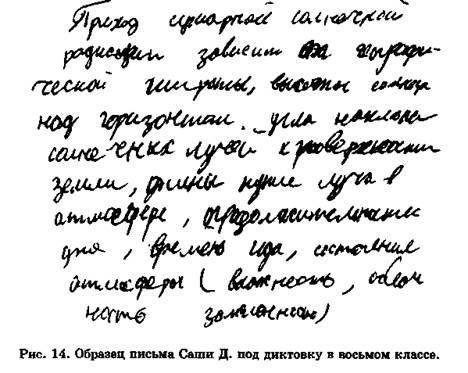 Приход суммарной солнечной
радиации зависит
ческой широты, высоты солнца
над горизонтом. угла наклона
лучей к поверхности
земли, длины пути луча в
атмосфере,
дня, времени года, состояния
атмосферы (влажность,
ность
Рис. 14. Образец письма Саши Д. под диктовку в восьмом классе.